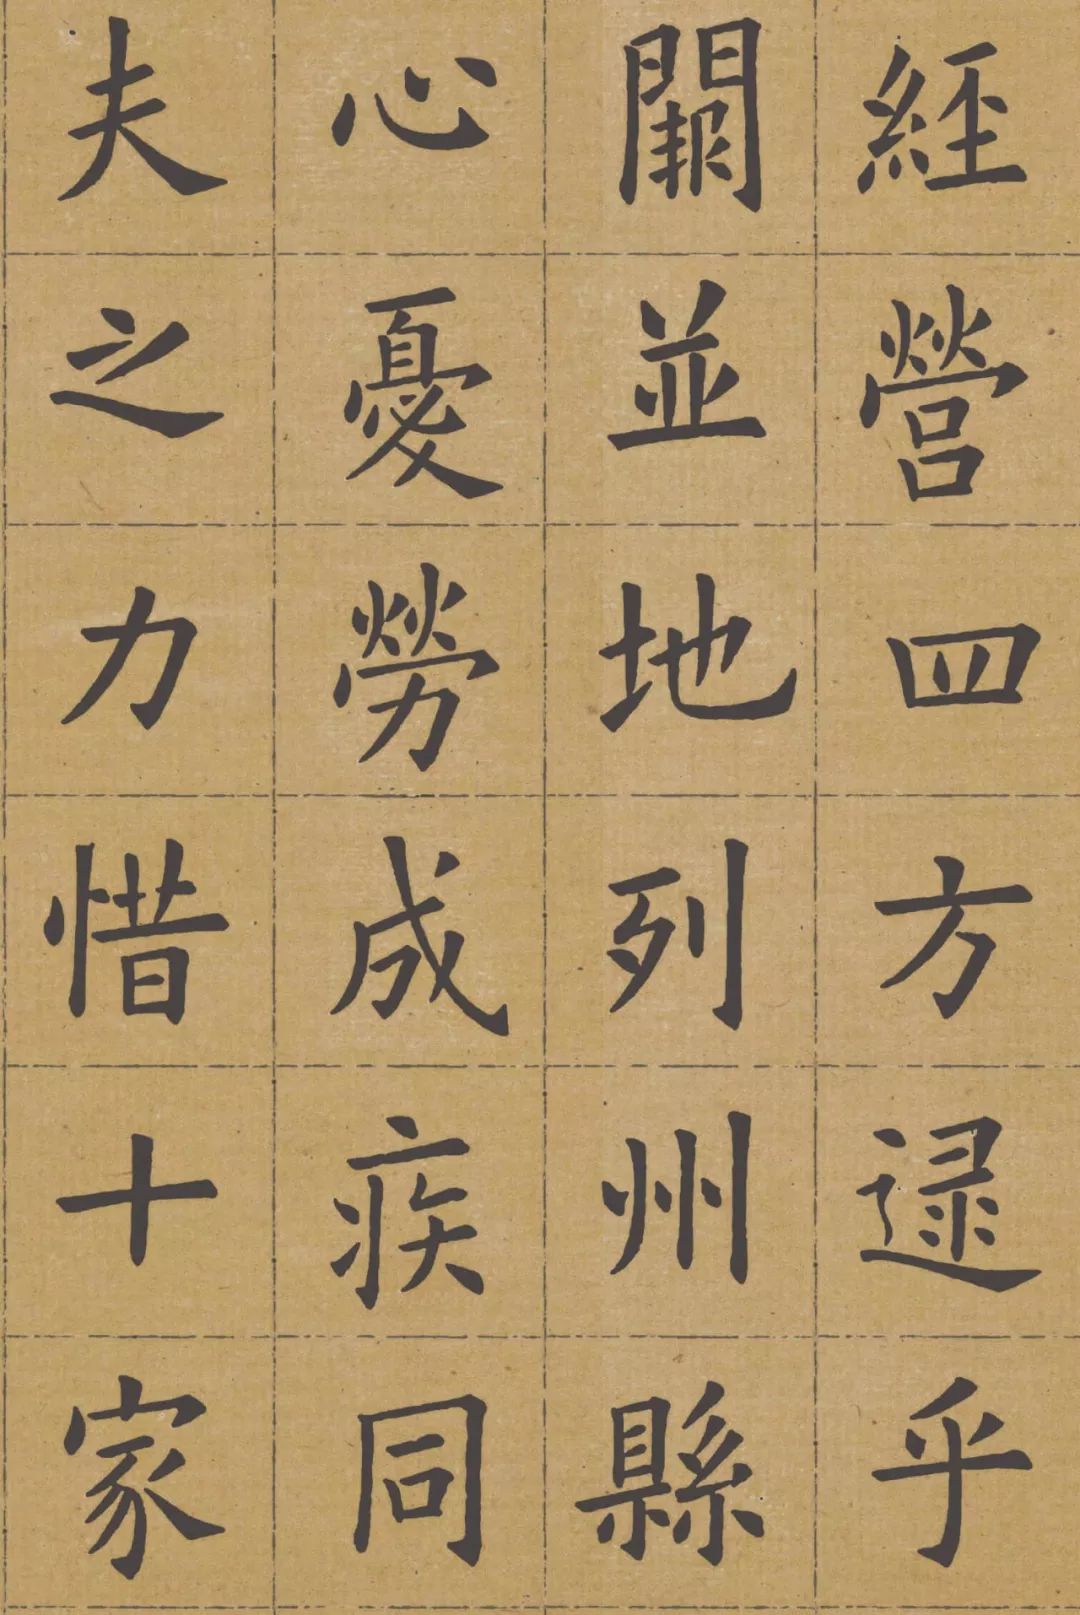 經營四方逮乎
闕並地列州縣
心憂勞成疾同
夫之力惜十家